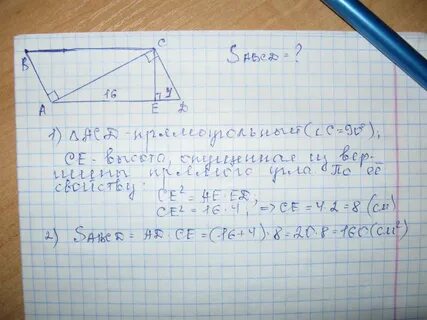 B
C
S ABCD = ?
A
16
E
4
D
1) ΔACD - прямоугольный (∠C = 90°),
CE - высота, опущенная из вер-
шины прямого угла. По её
свойству:
CE² = AE · ED,
CE² = 16 · 4, => CE = 4 · 2 = 8 (см)
2) S ABCD = AD · CE = (16+4) · 8 = 20 · 8 = 160 (см²)